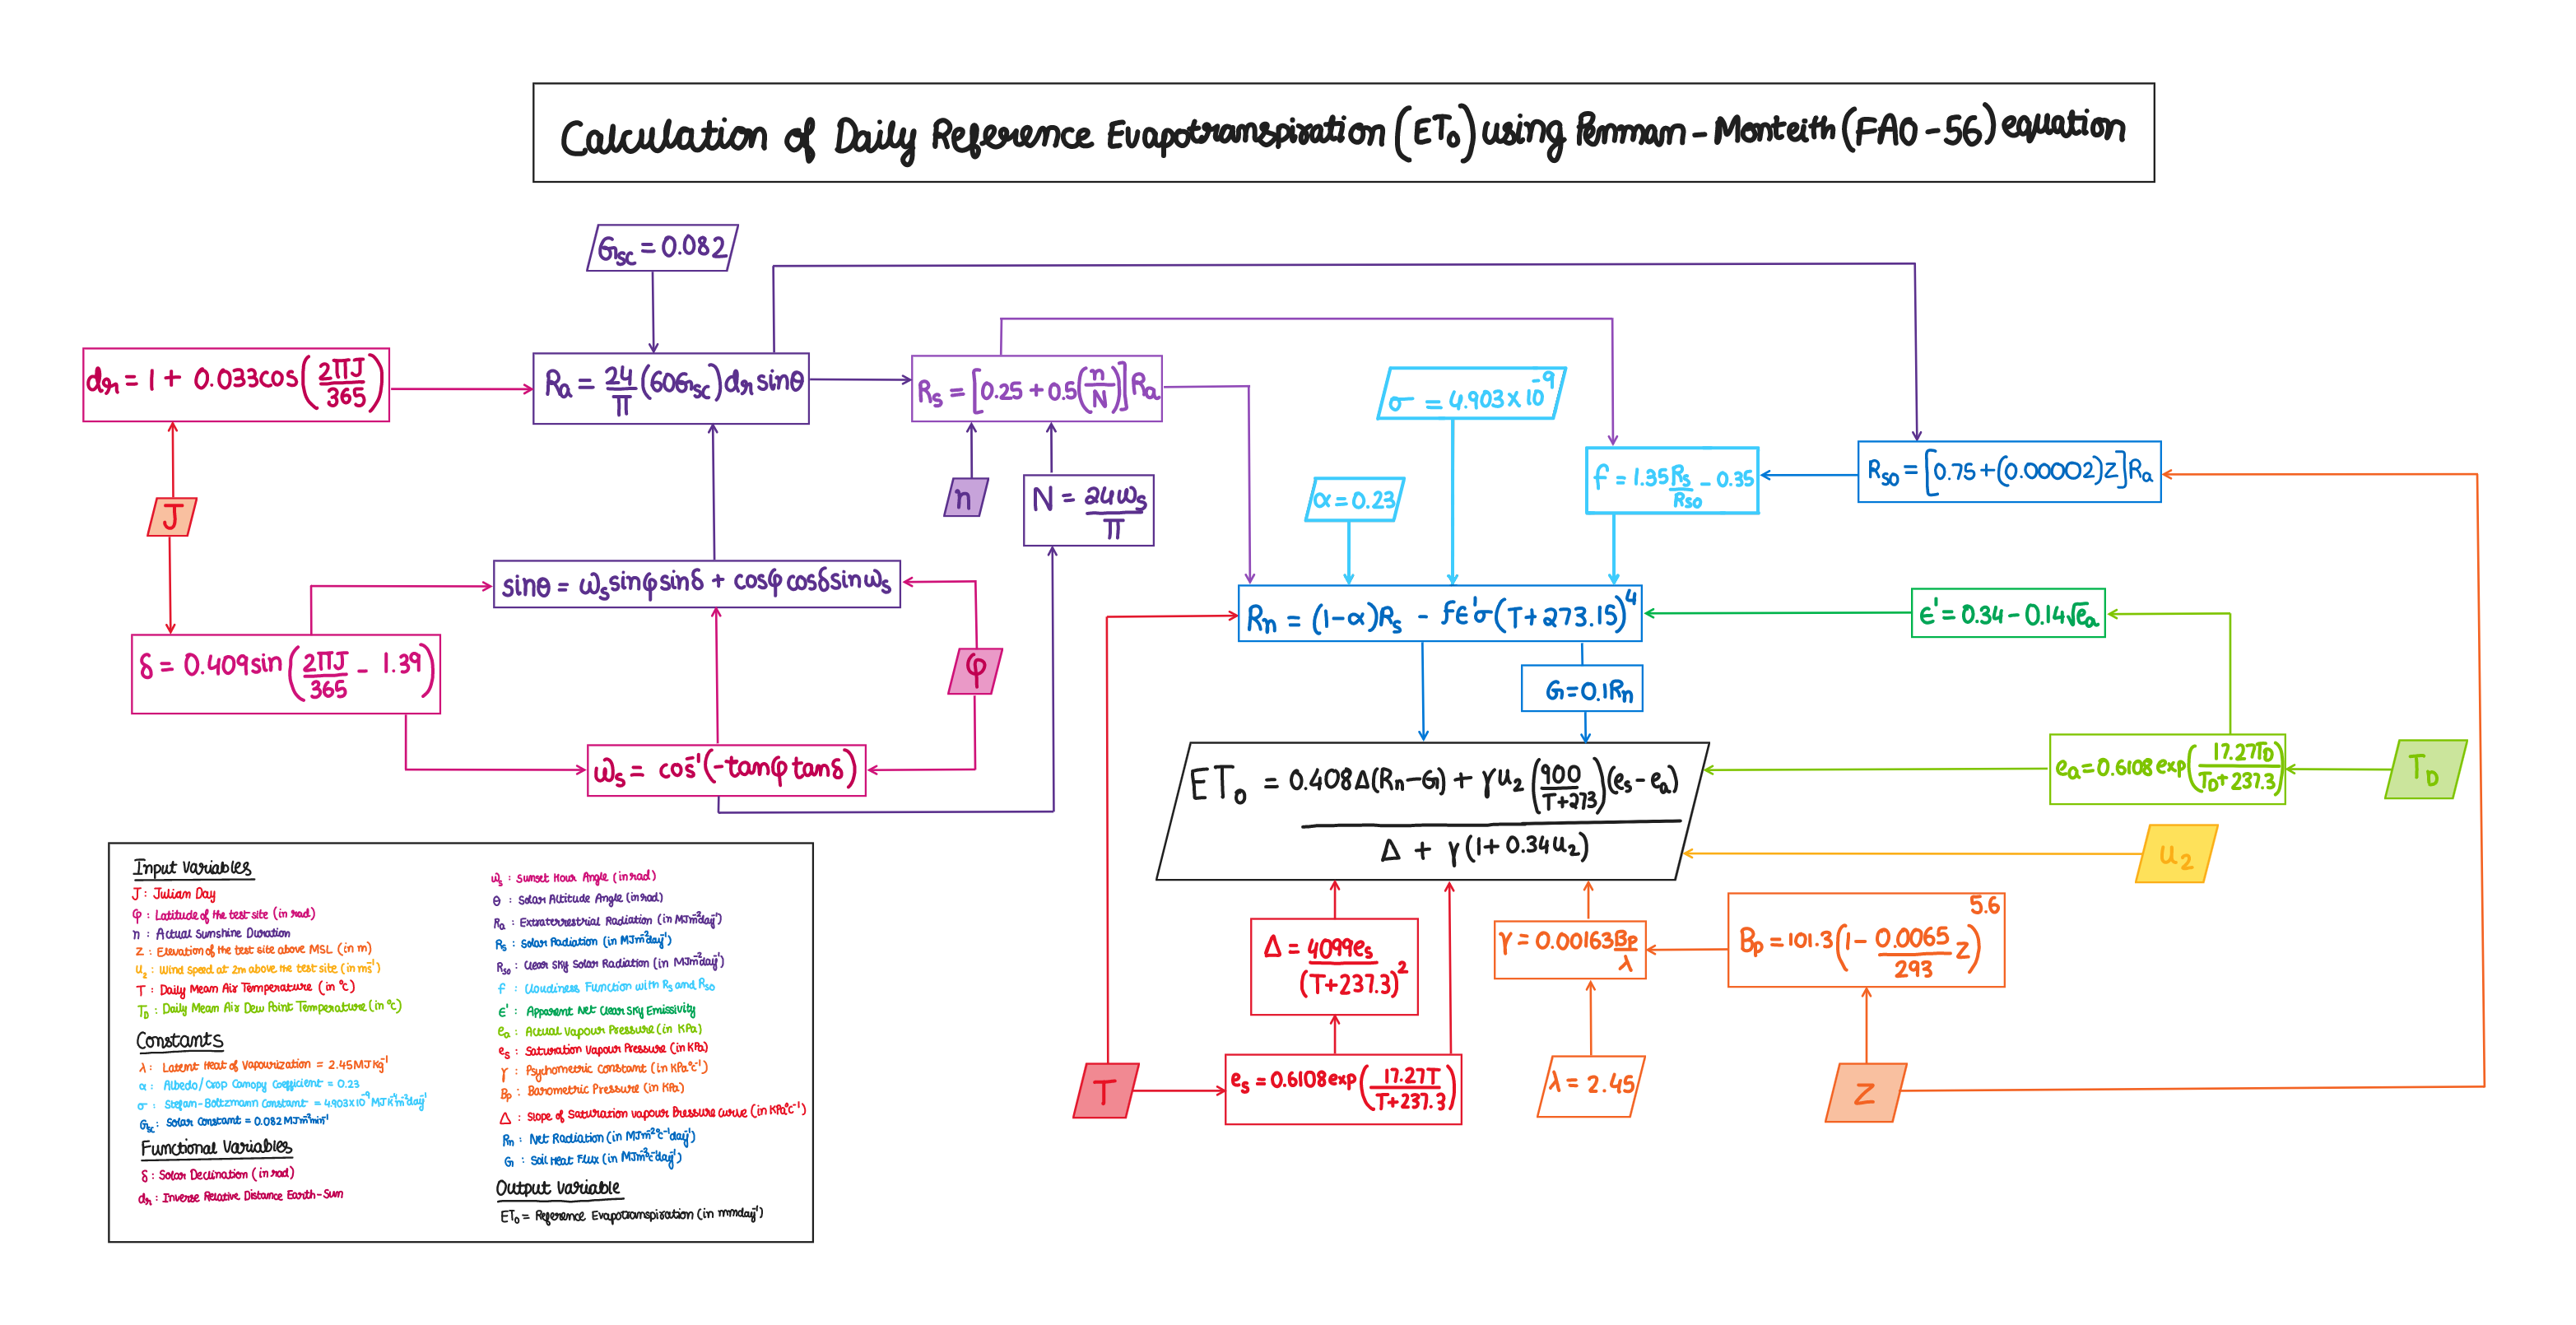 Calculation of Daily Reference Evapotranspiration (ET₀) using Penman-Monteith (FAO-56) equation
Gsc = 0.082
dr = 1 + 0.033cos(2πJ/365)
Ra = 24/π (60Gsc) dr sinθ
Rs = [0.25 + 0.5(n/N)] Ra
σ = 4.903 x 10⁻⁹
α = 0.23
f = 1.35 Rs/Rso - 0.35
Rso = [0.75 + (0.00002)Z] Ra
J
n
N = 24ωs/π
sinθ = ωs sinφ sinδ + cosφ cosδ sinωs
Rn = (1-α)Rs - fε'σ(T+273.15)⁴
ε' = 0.34 - 0.14√ea
δ = 0.409sin(2πJ/365 - 1.39)
φ
G = 0.1Rn
ωs = cos⁻¹(-tanφ tanδ)
ET₀ = 0.408Δ(Rn-G) + γu₂(900/T+273)(es-ea)
Δ + γ(1+0.34u₂)
ea = 0.6108 exp(17.27TD/TD+237.3)
TD
u₂
Δ = 4099es/(T+237.3)²
γ = 0.00163Bp/λ
Bp = 101.3(1 - 0.0065/293 Z)5.6
T
es = 0.6108exp(17.27T/T+237.3)
λ = 2.45
Z
Input Variables
J : Julian Day
φ : Latitude of the test site (in rad)
n : Actual Sunshine Duration
Z : Elevation of the test site above MSL (in m)
u₂ : Wind speed at 2m above the test site (in ms⁻¹)
T : Daily Mean Air Temperature (in °C)
TD : Daily Mean Air Dew Point Temperature (in °C)
Constants
λ : Latent Heat of Vapourization = 2.45MJKg⁻¹
α : Albedo/Crop Canopy Coefficient = 0.23
σ : Stefan-Boltzmann Constant = 4.903x10⁻⁹MJK⁻⁴m⁻²day⁻¹
Gsc : Solar Constant = 0.082MJm⁻²min⁻¹
Functional Variables
δ : Solar Declination (in rad)
dr : Inverse Relative Distance Earth-Sun
ωs : Sunset Hour Angle (in rad)
θ : Solar Altitude Angle (in rad)
Ra : Extraterrestrial Radiation (in MJm⁻²day⁻¹)
Rs : Solar Radiation (in MJm⁻²day⁻¹)
Rso : Clear Sky Solar Radiation (in MJm⁻²day⁻¹)
f : Cloudiness Function with Rs and Rso
ε' : Apparent Net Clear Sky Emissivity
ea : Actual Vapour Pressure (in KPa)
es : Saturation Vapour Pressure (in KPa)
γ : Psychometric Constant (in KPa°C⁻¹)
Bp : Barometric Pressure (in KPa)
Δ : Slope of Saturation Vapour Pressure curve (in KPa°C⁻¹)
Rn : Net Radiation (in MJm⁻²°C⁻¹day⁻¹)
G : Soil Heat Flux (in MJm⁻²°C⁻¹day⁻¹)
Output Variable
ET₀ = Reference Evapotranspiration (in mmday⁻¹)